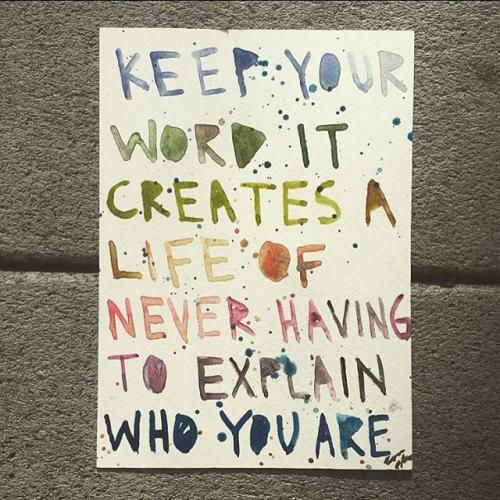 KEEP YOUR
WORD IT
CREATES A
LIFE OF
NEVER HAVING
TO EXPLAIN
WHO YOU ARE